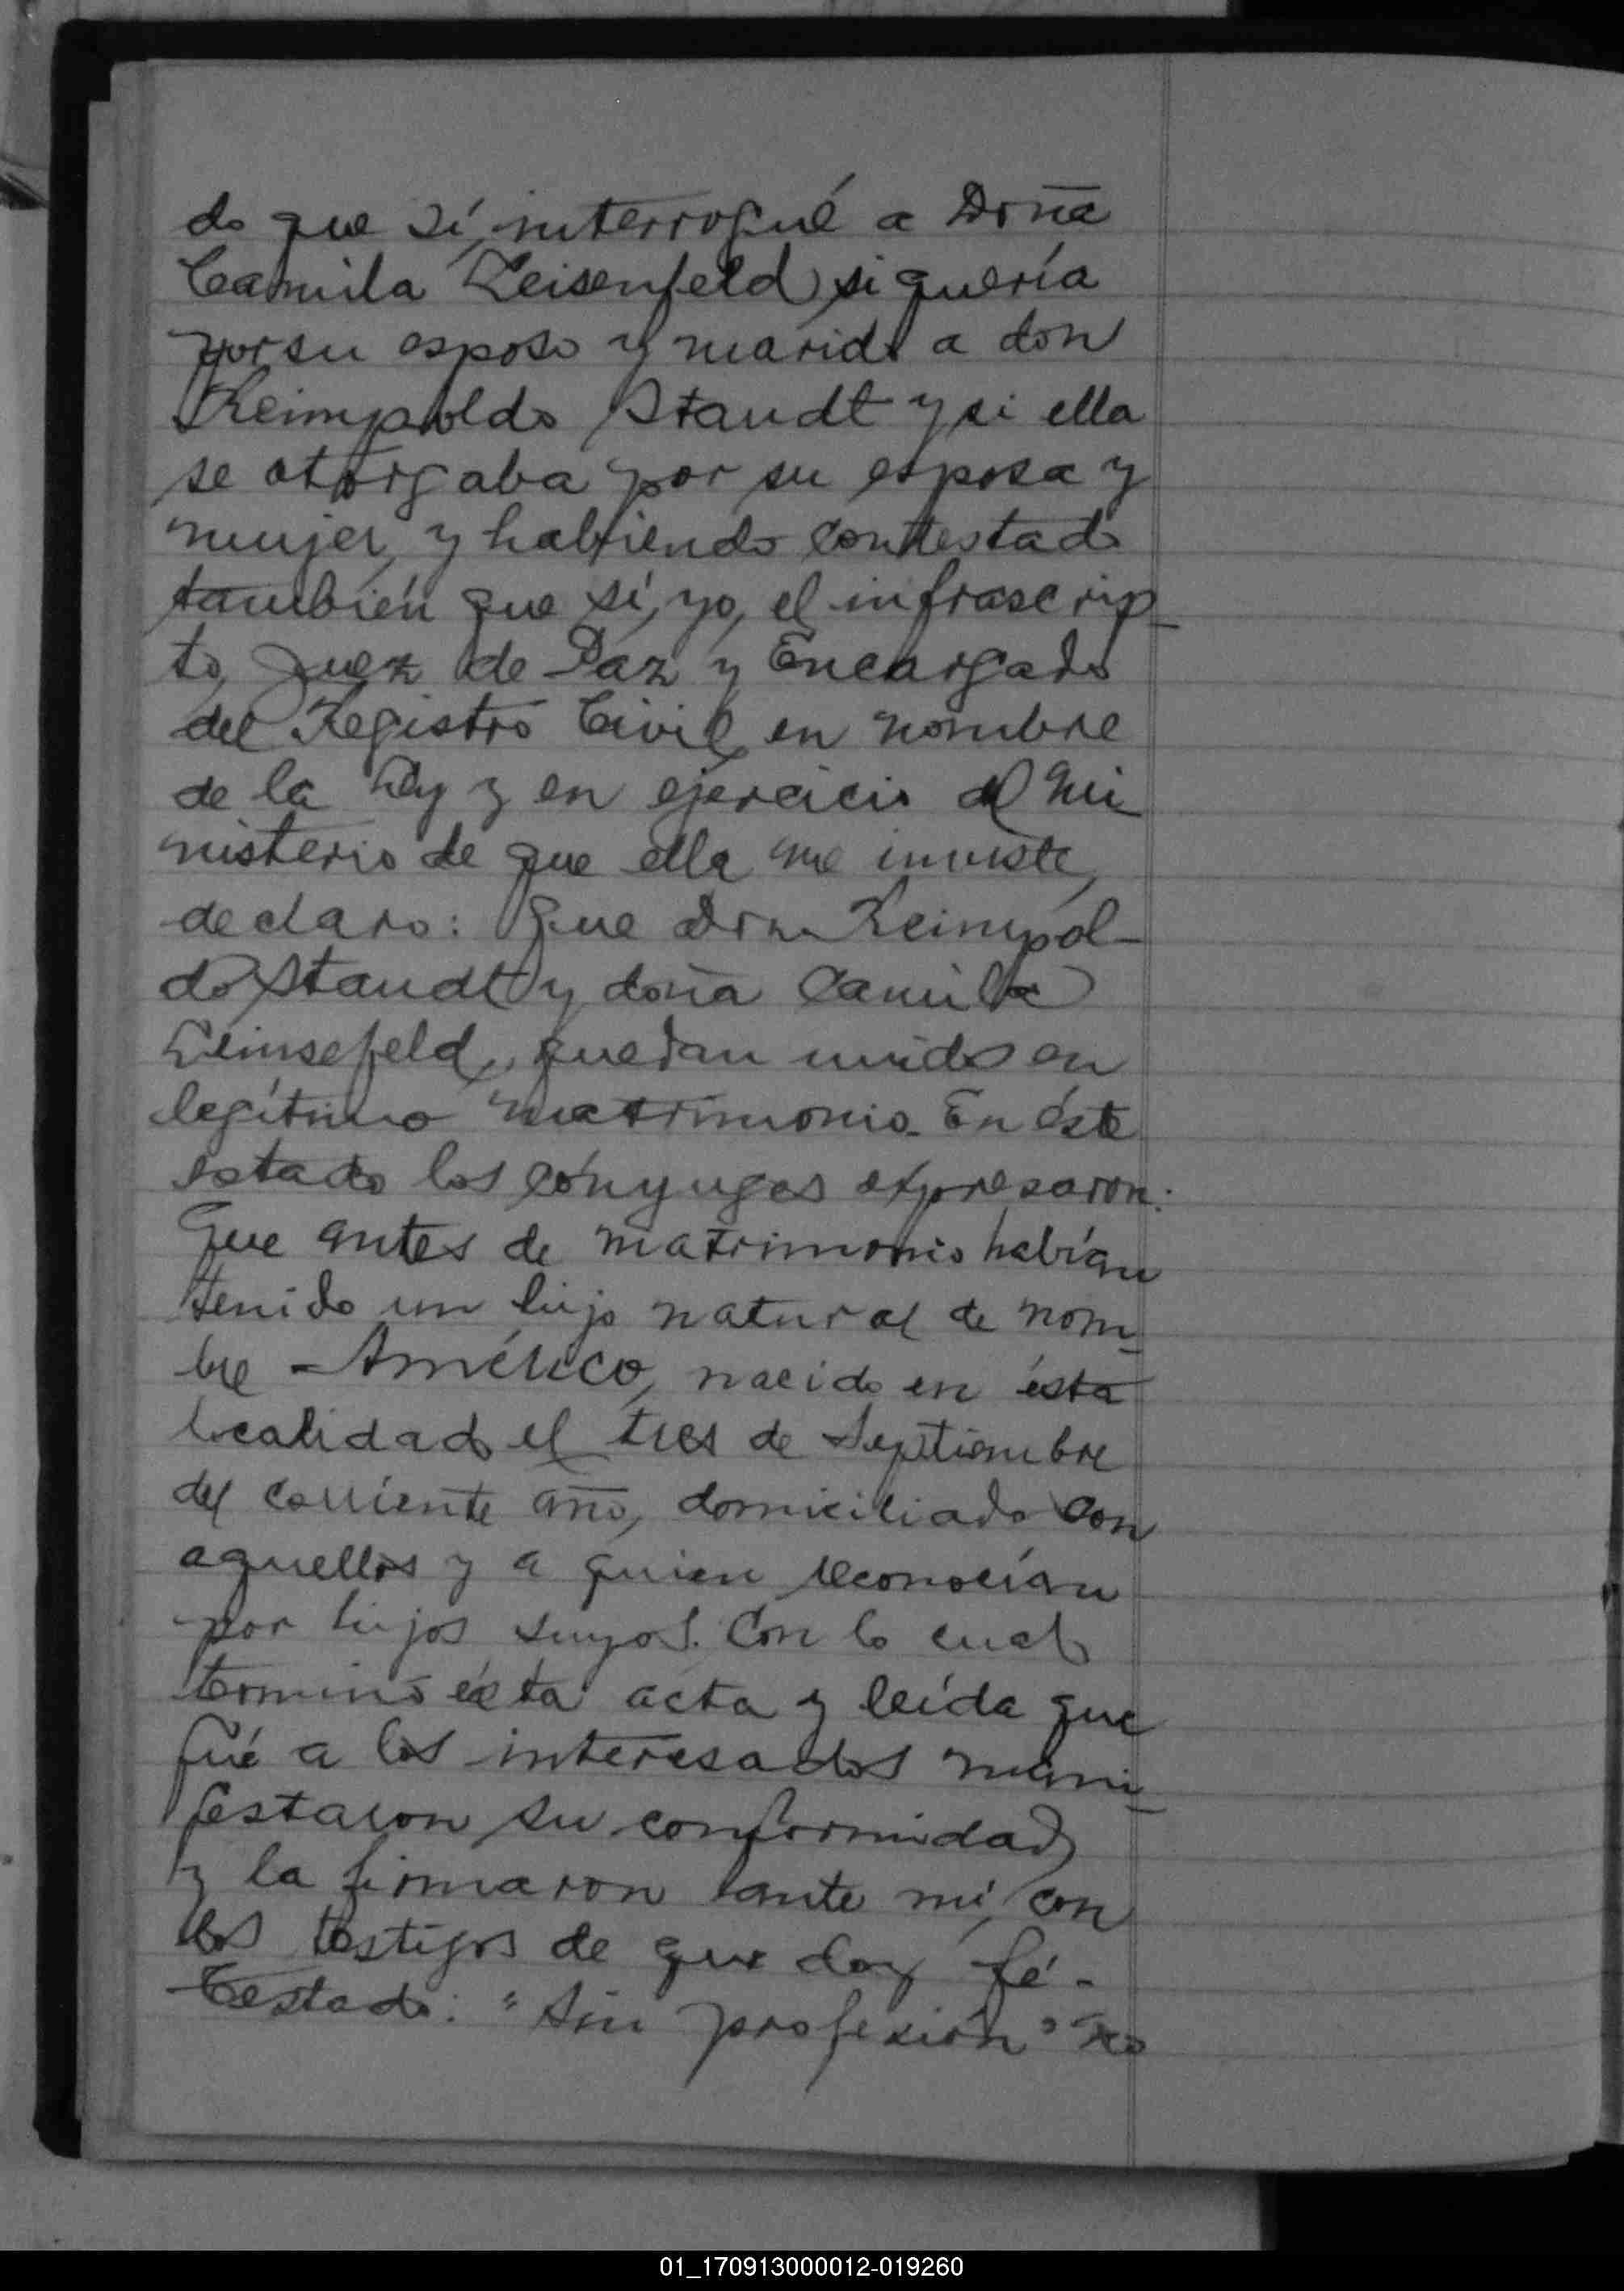 do que sí, interrogué a Doña
Camila Leisenfeld, si quería
por su esposo y marido a don
Reimpoldo Staudt y si ella
se otorgaba por su esposa y
mujer, y habiendo contestado
también que sí, yo, el infrascrip-
to, Juez de Paz y Encargado
del Registro Civil, en nombre
de la Ley y en ejercicio del mi-
nisterio de que ella me inviste,
declaro: Que Don Reimpol-
do Staudt y doña Camila
Leinsefeld, quedan unidos en
legítimo matrimonio. En éste
estado los cónyuges expresaron:
Que antes de matrimonio habían
tenido un hijo natural de nom-
bre Américo, nacido en ésta
localidad el tres de Septiembre
del corriente año, domiciliado con
aquellos y a quien reconocían
por hijos suyos. Con lo cual
terminó ésta acta y leída que
fué a los interesados mani-
festaron su conformidad
y la firmaron ante mí, con
los testigos de que doy fé.-
Testado: "Sin profesión" No
01_170913000012-019260